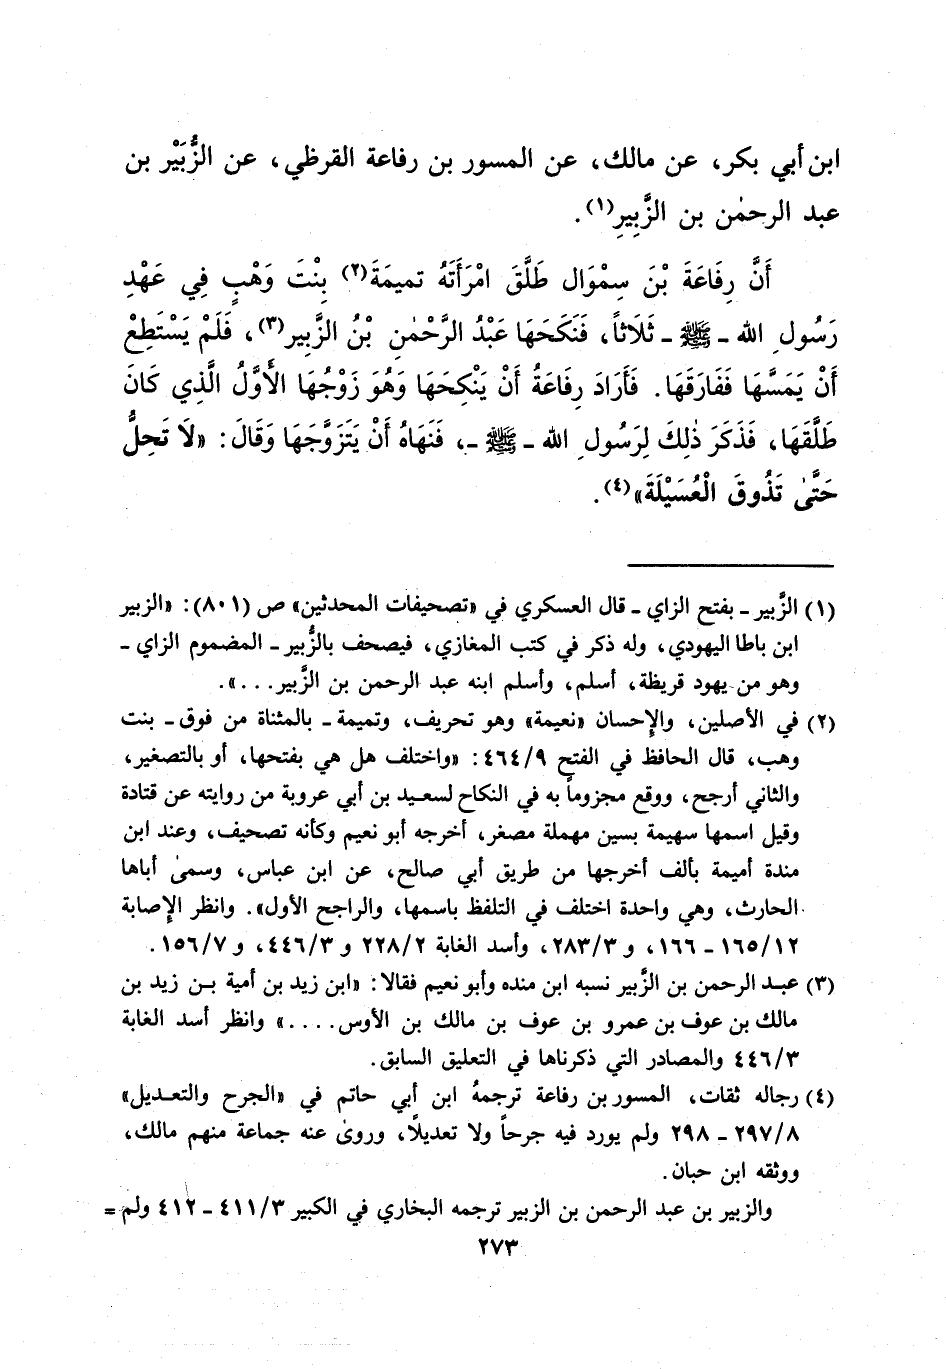 ابن أبي بكر، عن مالك، عن المسور بن رفاعة القرظي، عن الزُّبَيْر بن
عبد الرحمٰن بن الزَّبِيرِ(١).
أَنَّ رِفَاعَةَ بْنَ سِمْوَال طَلَّقَ امْرَأَتَهُ تميمَةَ(٢) بِنْتَ وَهْبٍ فِي عَهْدِ
رَسُولِ الله ـ ﷺ ـ ثَلَاثاً، فَنَكَحَهَا عَبْدُ الرَّحْمٰنِ بْنُ الزَّبِير(٣)، فَلَمْ يَسْتَطِعْ
أَنْ يَمَسَّهَا فَفَارَقَهَا. فَأَرَادَ رِفَاعَةُ أَنْ يَنْكِحَهَا وَهُوَ زَوْجُهَا الأَوَّلُ الَّذِي كَانَ
طَلَّقَهَا، فَذَكَرَ ذٰلِكَ لِرَسُولِ الله ـ ﷺ ـ، فَنَهَاهُ أَنْ يَتَزَوَّجَهَا وَقَالَ: «لَا تَحِلُّ
حَتَّىٰ تَذُوقَ الْعُسَيْلَةَ»(٤).
(١) الزَّبير ـ بفتح الزاي ـ قال العسكري في «تصحيفات المحدثين» ص (٨٠١): «الزبير
ابن باطا اليهودي، وله ذكر في كتب المغازي، فيصحف بالزُّبير ـ المضموم الزاي ـ
وهو من يهود قريظة، أسلم، وأسلم ابنه عبد الرحمن بن الزَّبير...».
(٢) في الأصلين، والإحسان «نعيمة» وهو تحريف، وتميمة ـ بالمثناة من فوق ـ بنت
وهب، قال الحافظ في الفتح ٤٦٤/٩: «واختلف هل هي بفتحها، أو بالتصغير،
والثاني أرجح، ووقع مجزوماً به في النكاح لسعيد بن أبي عروبة من روايته عن قتادة
وقيل اسمها سهيمة بسين مهملة مصغر، أخرجه أبو نعيم وكأنه تصحيف، وعند ابن
مندة أميمة بألف أخرجها من طريق أبي صالح، عن ابن عباس، وسمىٰ أباها
الحارث، وهي واحدة اختلف في التلفظ باسمها، والراجح الأول». وانظر الإصابة
١٦٥/١٢ ـ ١٦٦، و ٢٨٣/٣، وأسد الغابة ٢٢٨/٢ و ٤٤٦/٣، و ١٥٦/٧.
(٣) عبد الرحمن بن الزَّبير نسبه ابن منده وأبو نعيم فقالا: «ابن زيد بن أمية بن زيد بن
مالك بن عوف بن عمرو بن عوف بن مالك بن الأوس....» وانظر أسد الغابة
٤٤٦/٣ والمصادر التي ذكرناها في التعليق السابق.
(٤) رجاله ثقات، المسور بن رفاعة ترجمهُ ابن أبي حاتم في «الجرح والتعديل»
٢٩٧/٨ ـ ٢٩٨ ولم يورد فيه جرحاً ولا تعديلًا، وروىٰ عنه جماعة منهم مالك،
ووثقه ابن حبان.
والزبير بن عبد الرحمن بن الزبير ترجمه البخاري في الكبير ٤١١/٣ ـ ٤١٢ ولم =
٢٧٣